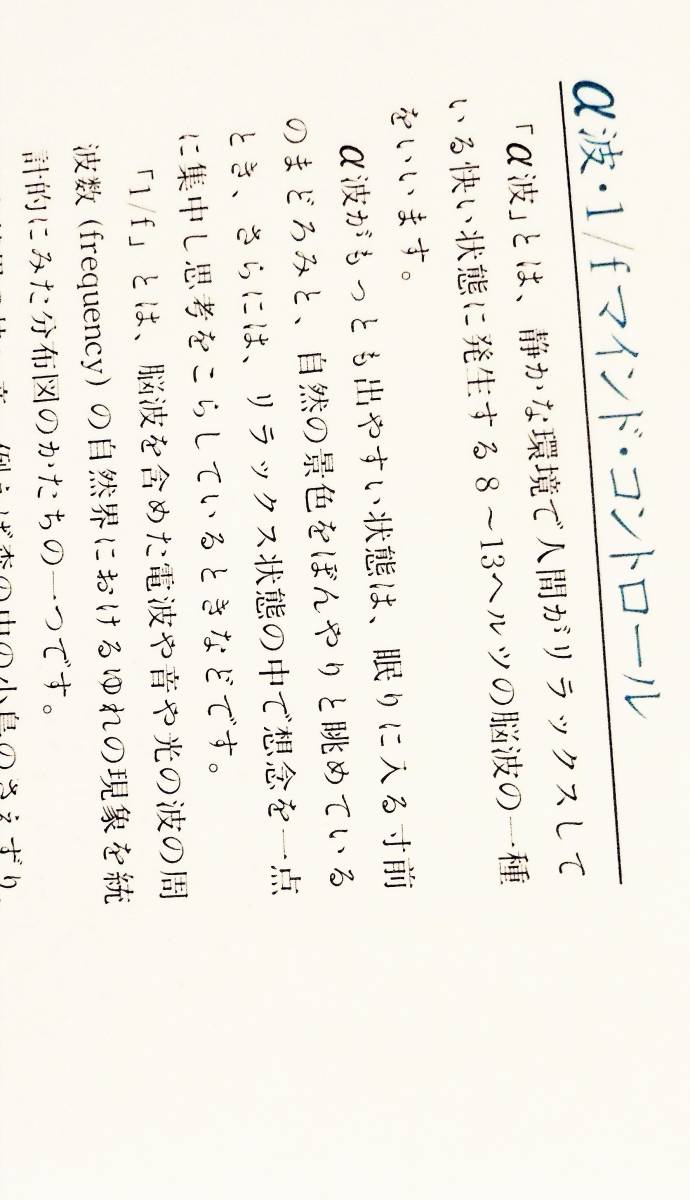 α波・1/fマインド・コントロール
「α波」とは、静かな環境で人間がリラックスして
いる快い状態に発生する8〜13ヘルツの脳波の一種
をいいます。
α波がもっとも出やすい状態は、眠りに入る寸前
のまどろみと、自然の景色をぼんやりと眺めている
とき、さらには、リラックス状態の中で想念を一点
に集中し思考をこらしているときなどです。
「1/f」とは、脳波を含めた電波や音や光の波の周
波数(frequency)の自然界におけるゆれの現象を統
計的にみた分布図のかたちの一つです。
例えば森の中の小鳥のさえずり、